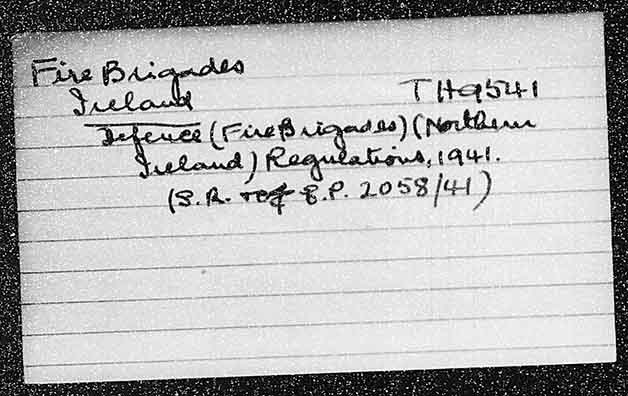 Fire Brigades
Ireland TH9541
Defence (Fire Brigades) (Northern
Ireland) Regulations, 1941.
(S.R. E.P. 2058/41)